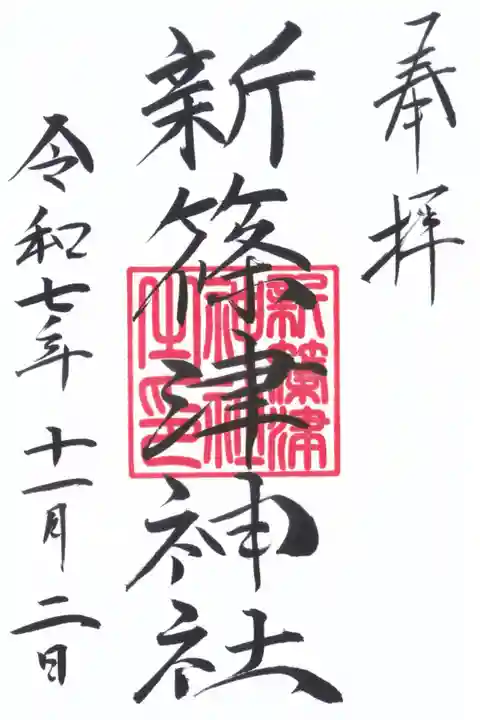 奉拝
新篠津神社
新篠津
神社
之印
令和七年十一月二日